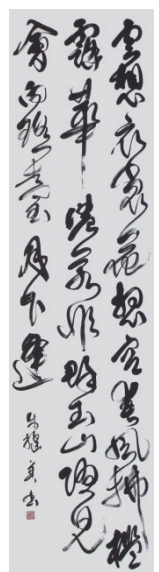 雲想衣裳花想容春風拂檻
露華濃若非群玉山頭見
會向瑤臺月下逢